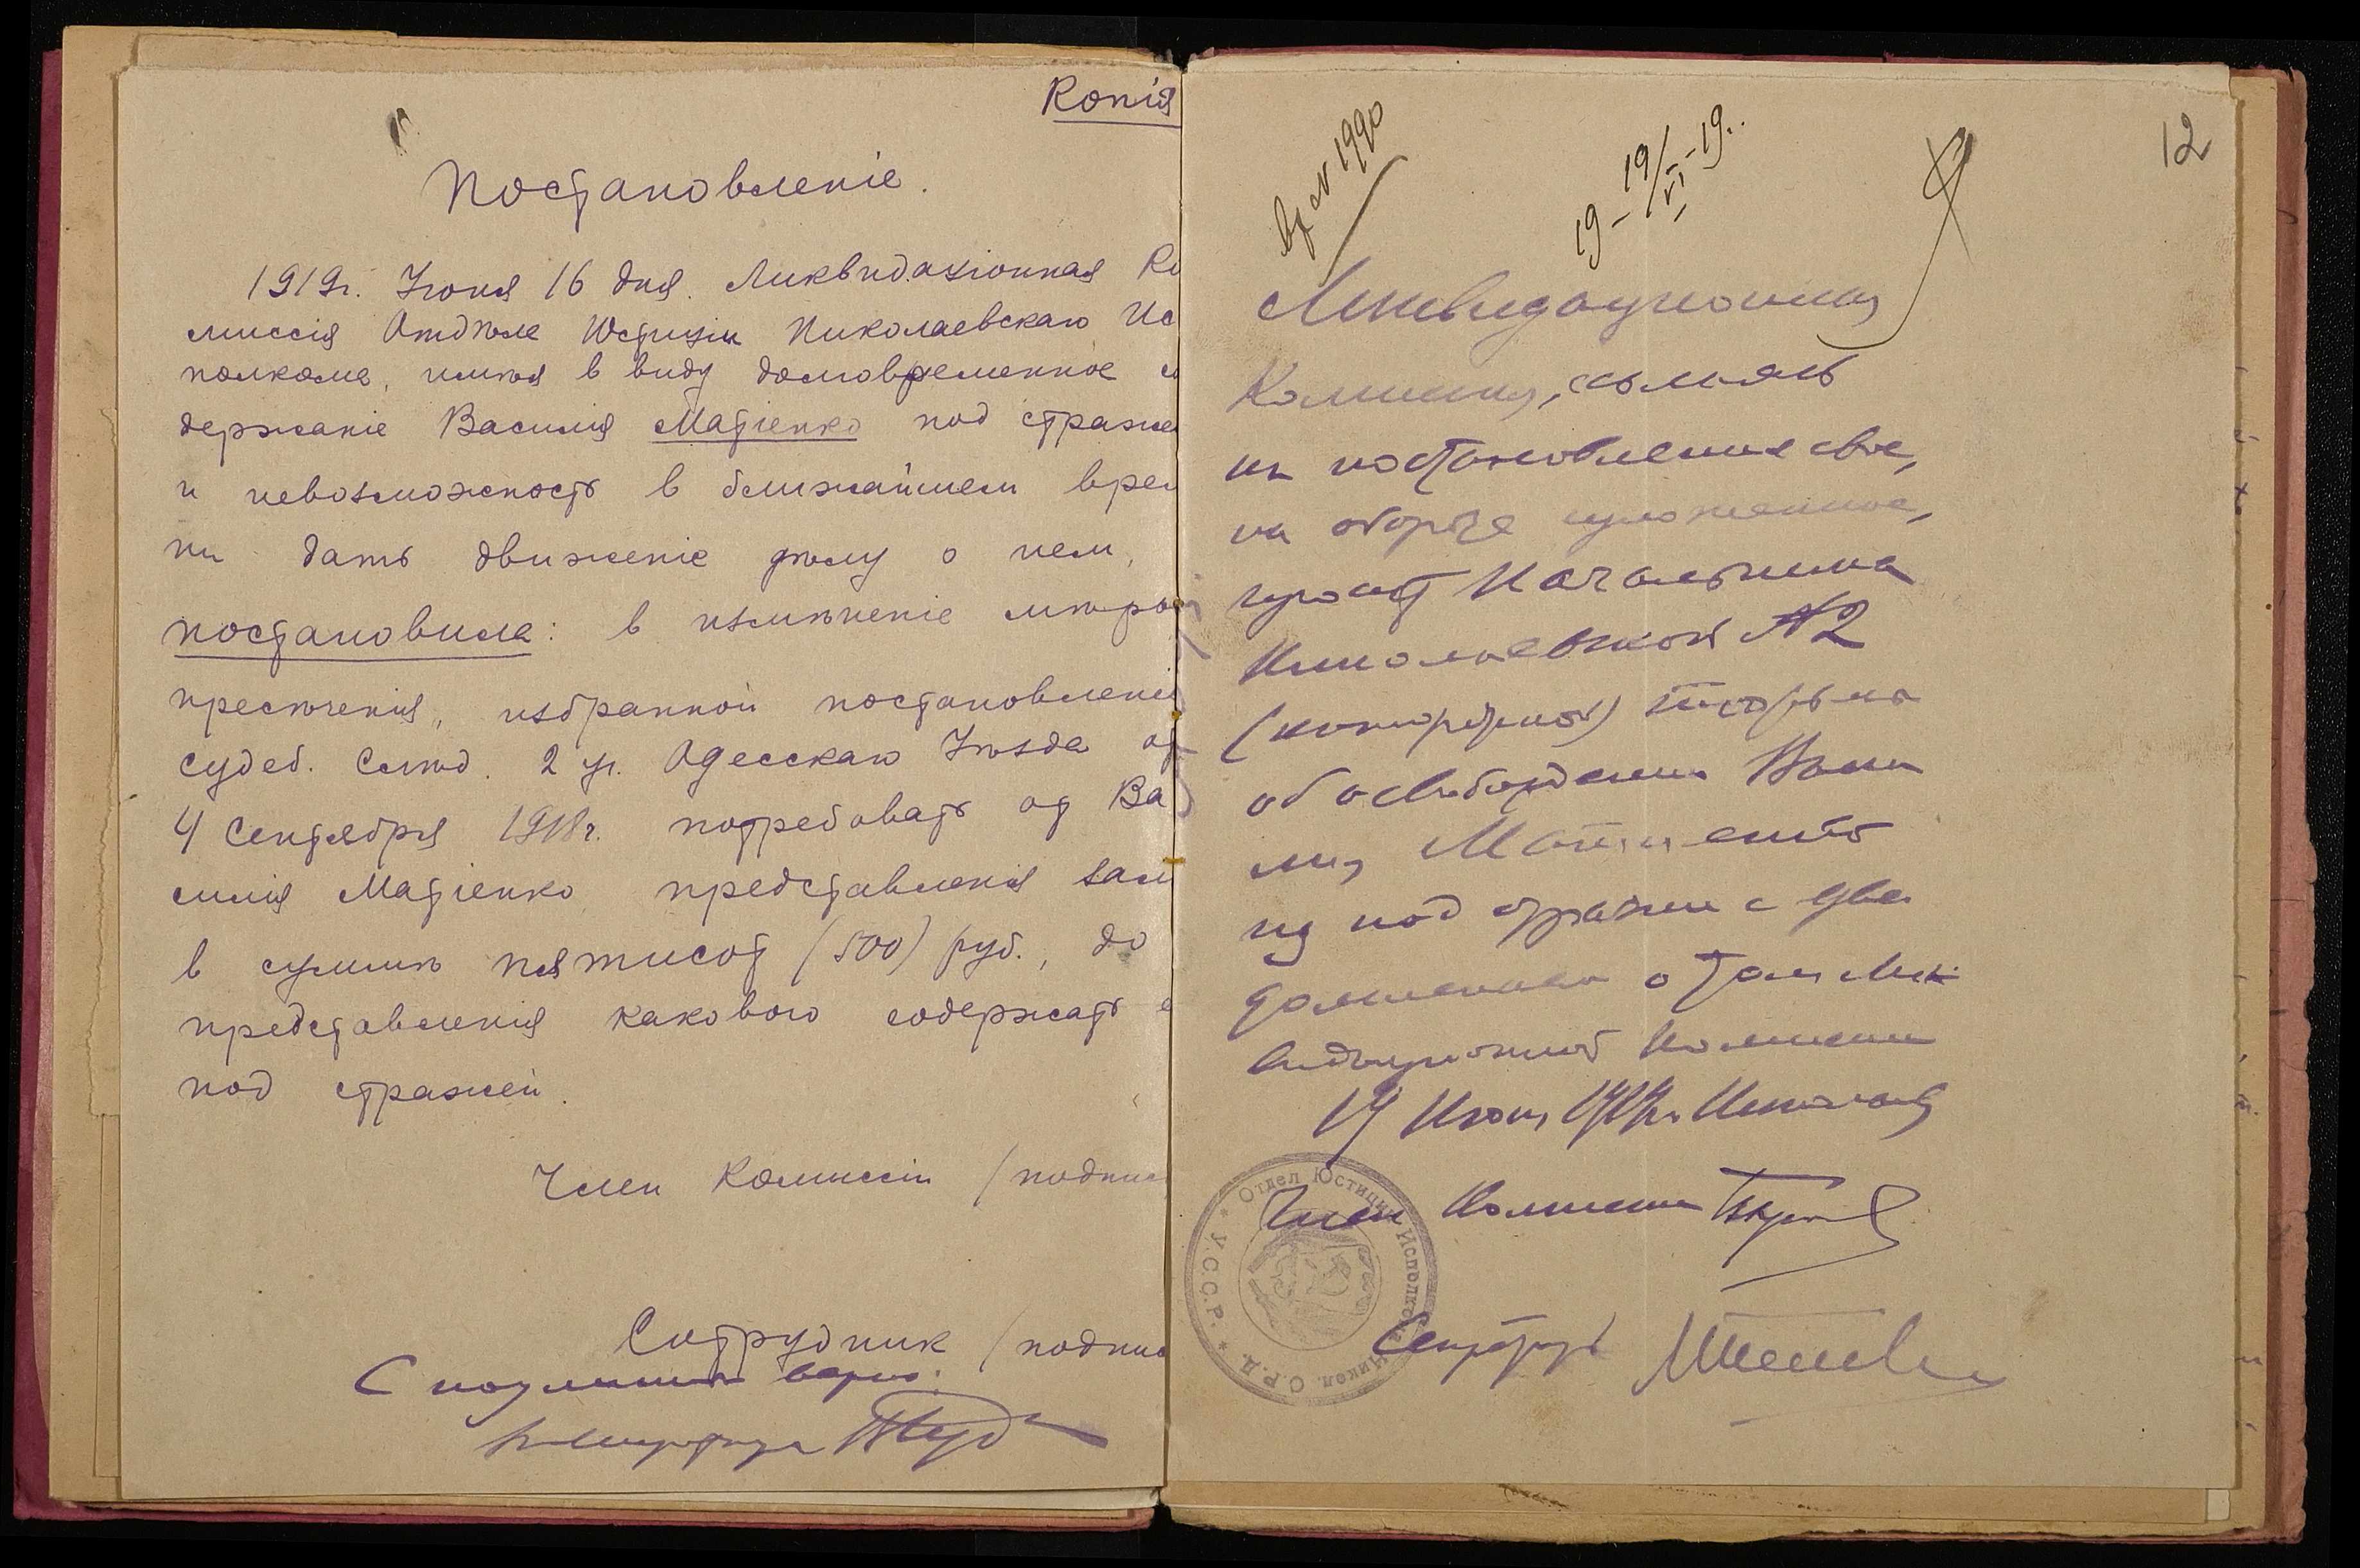 Копія
Постановленіе.
1919г. Іюня 16 дня. Ликвидаціонная Ко
миссія Отдѣле Юстиціи Николаевскаго Ис
полкома, имѣя в виду долговременное со
держаніе Василія Матіенко под страже
и невозможность в ближайшем врем
ни дать движеніе дѣлу о нем,
постановила: в измѣненіе мѣры
пресѣченія, избранной постановлені
судеб. Слѣд. 2 уч. Одесскаго Уѣзда от
4 Сентября 1918г. потребовать от Ва
силія Матіенко представленія зал
в суммѣ пятисот (500) руб., до
представленія какового содержать е
под стражей.
Член Комиссіи (подпис
Сотрудник (подпис
С подлинным верно:
12
вх № 1990
19-19/VI-19..
Ликвидационная
Комиссия, ссылаясь
на постановление свое,
на обороте изложенное,
просит Начальника
Николаевской №2
(каторжной) тюрьмы
об освобождении Васи
лия Матиенко
из под стражи с уве
домлением о том Лик
видационной Комиссии
19 Июня 1919г. Николаев
Член Комиссии
Секретарь
Отдел Юстиции Исполкома Никол. С.Р.Д. * У.С.С.Р. *